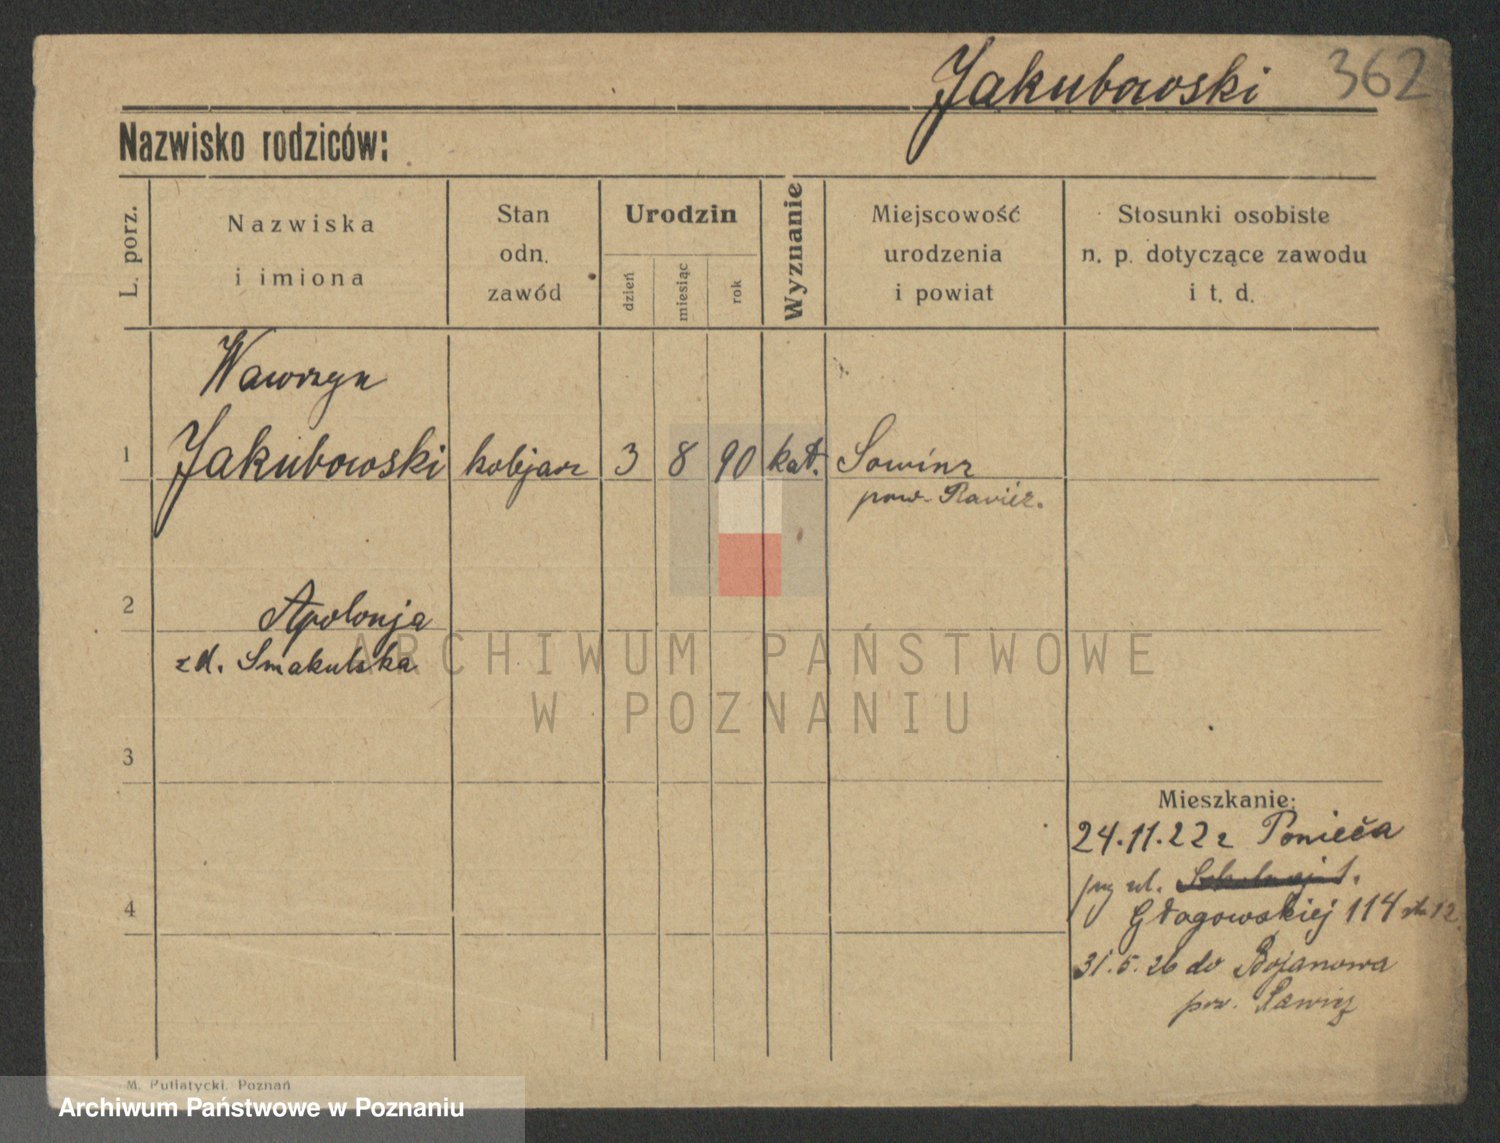 Jakubowski 362
Nazwisko rodziców:
L. porz.
Nazwiska
i imiona
Stan
odn.
zawód
Urodzin
dzień
miesiąc
rok
Wyznanie
Miejscowość
urodzenia
i powiat
Stosunki osobiste
n. p. dotyczące zawodu
i t. d.
Wawrzyn
1 Jakubowski kolejarz 3 8 90 kat. Sowiny
pow. Rawicz.
2 Apolonja
zd. Smakulska
3
Mieszkanie:
24.11.22 z Ponieca
przy ul. 1.
4 Głogowskiej 114 12
31.5.26 do Bojanowa
pow. Rawicz
ARCHIWUM PAŃSTWOWE
W POZNANIU
M. Putiatycki, Poznań
Archiwum Państwowe w Poznaniu